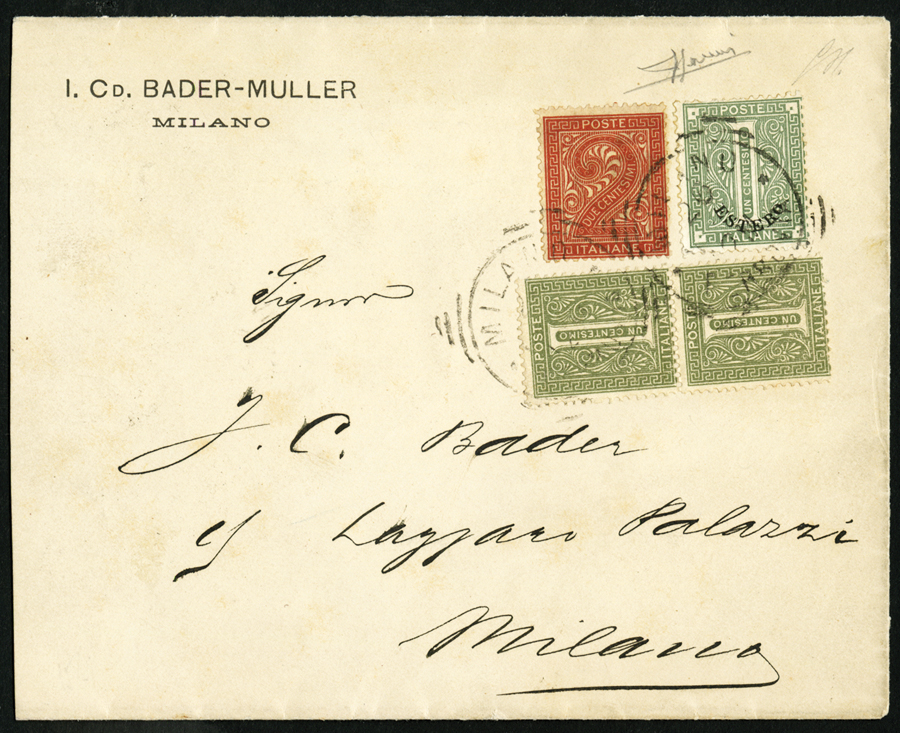 I. CD. BADER-MULLER
MILANO
POSTE
DUE CENTESIMI
ITALIANE
UN CENTESIMO
ESTERO
ITALIANE
MILANO
POSTE
UN CENTESIMO
ITALIANE
POSTE
UN CENTESIMO
ITALIANE
Signor
J. C. Bader
Lazzaro Palazzi
Milano